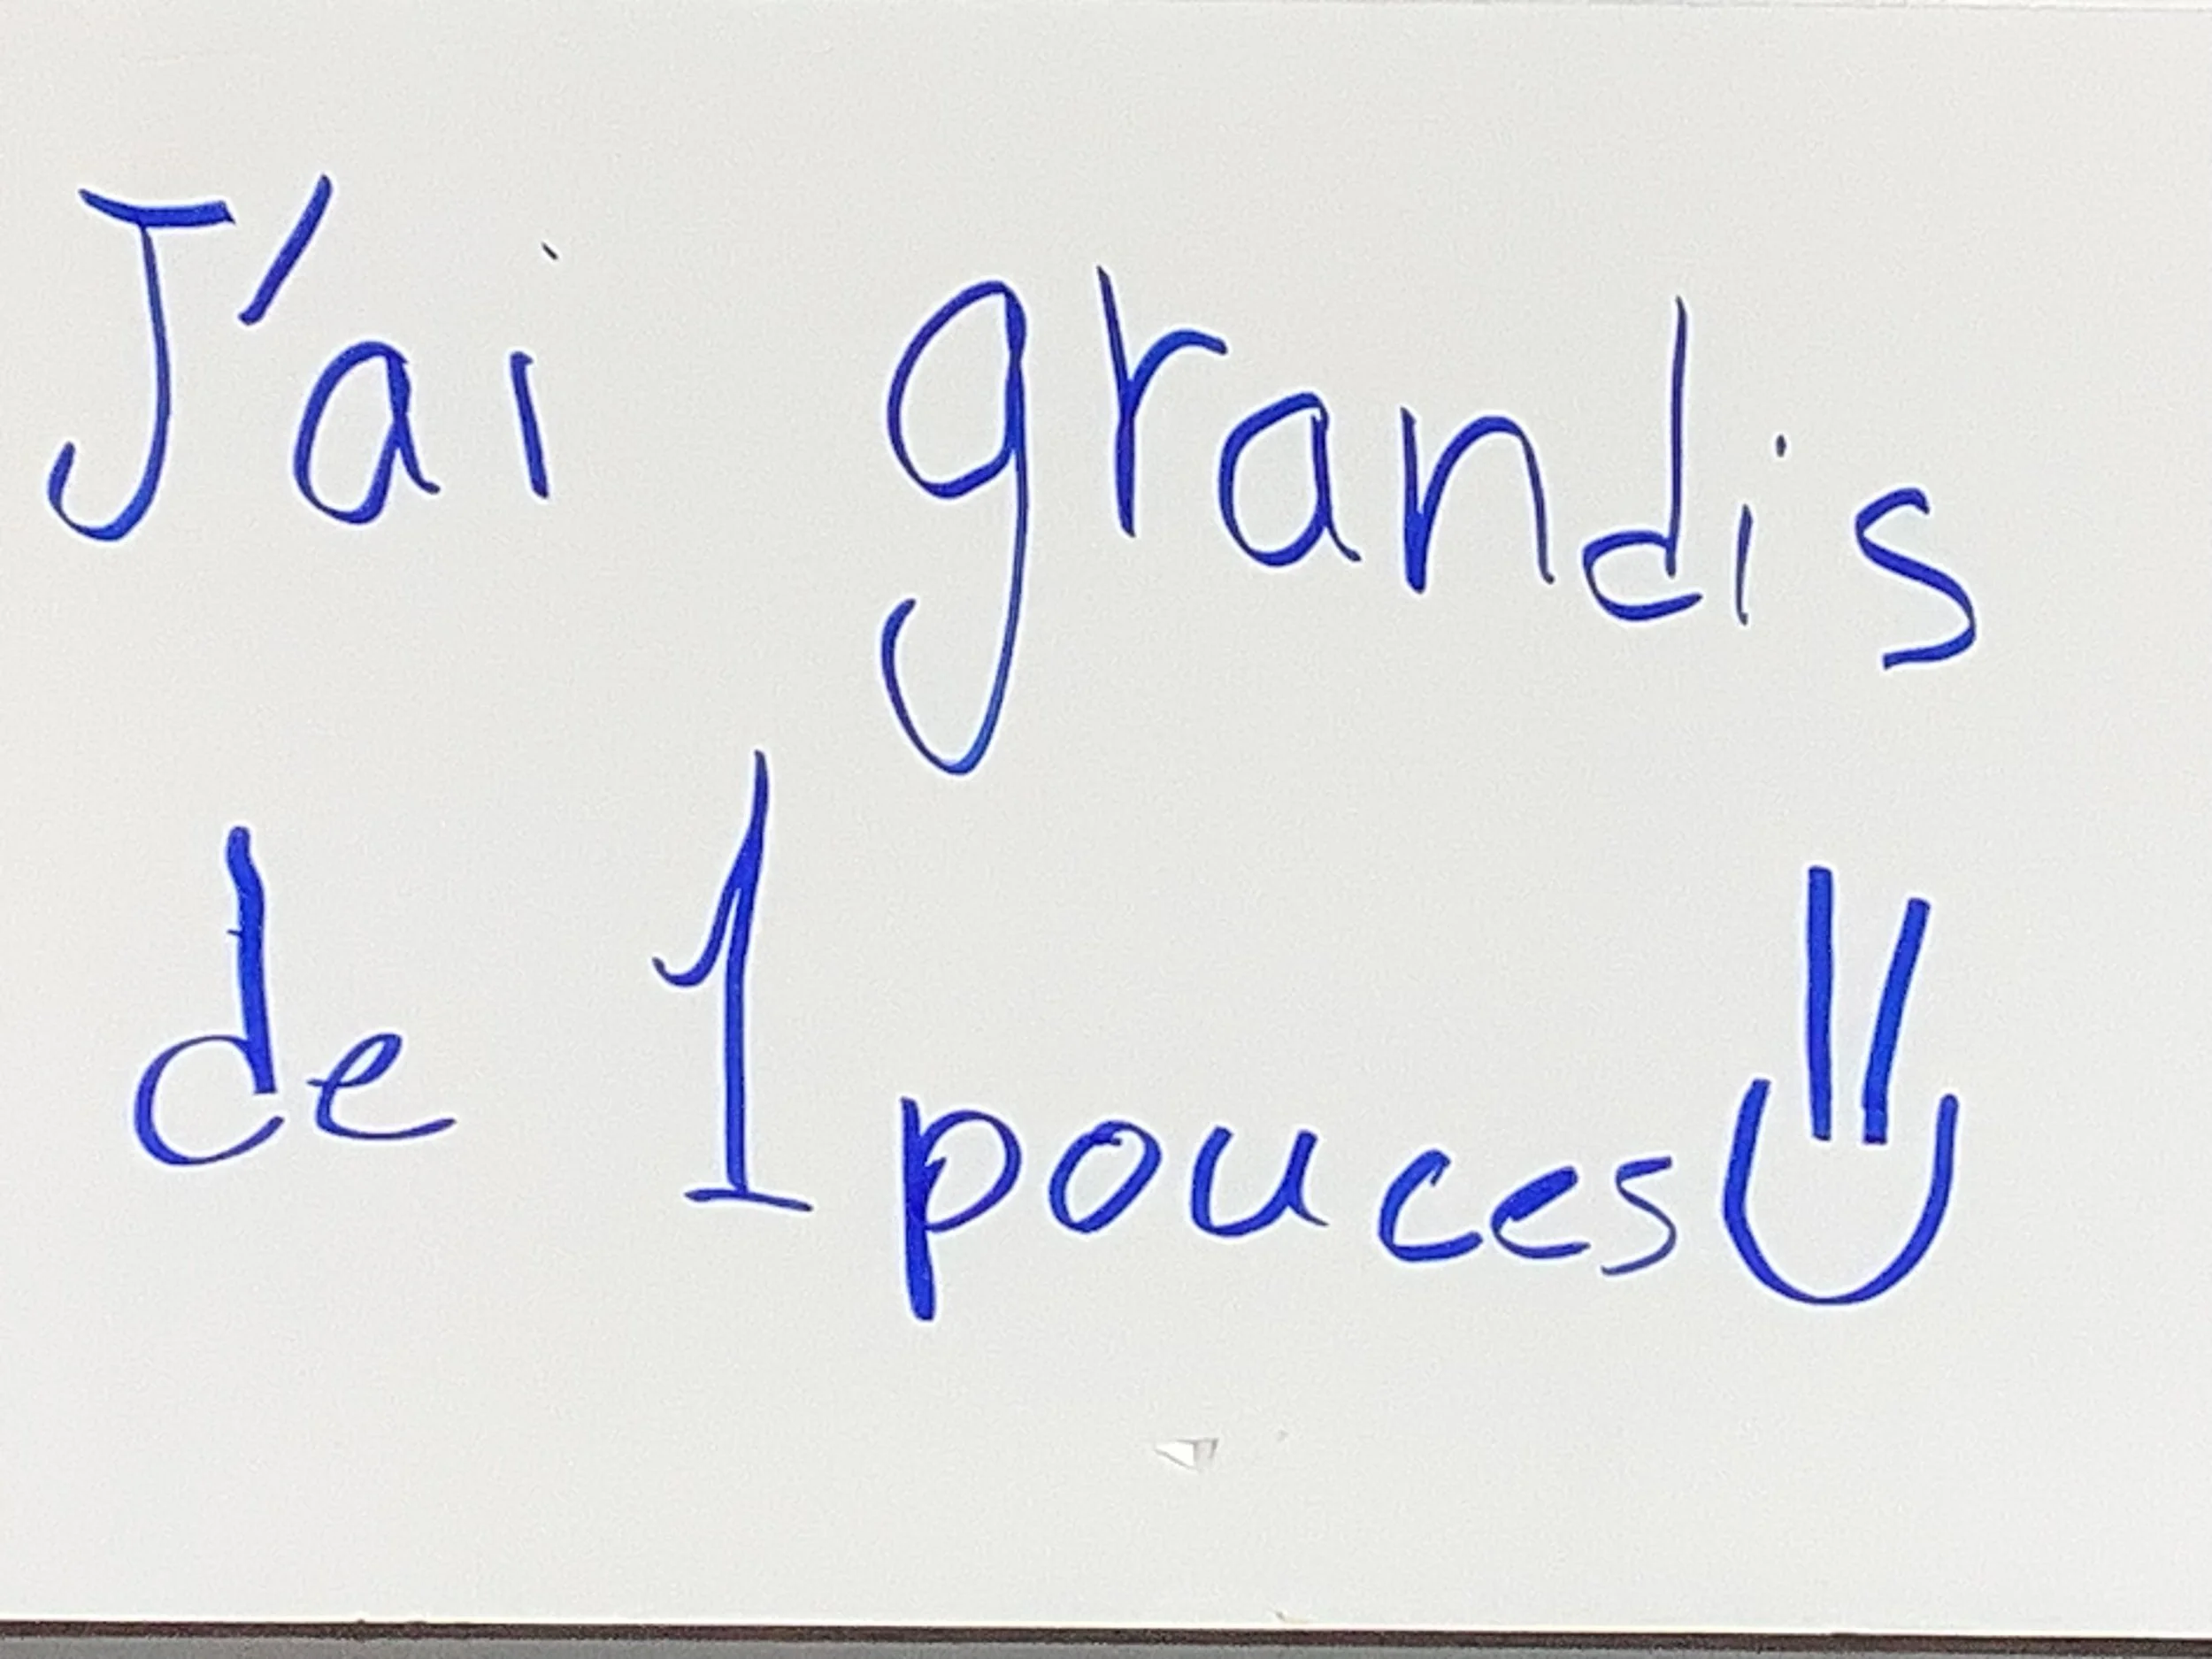 J'ai grandis
de 1 pouces